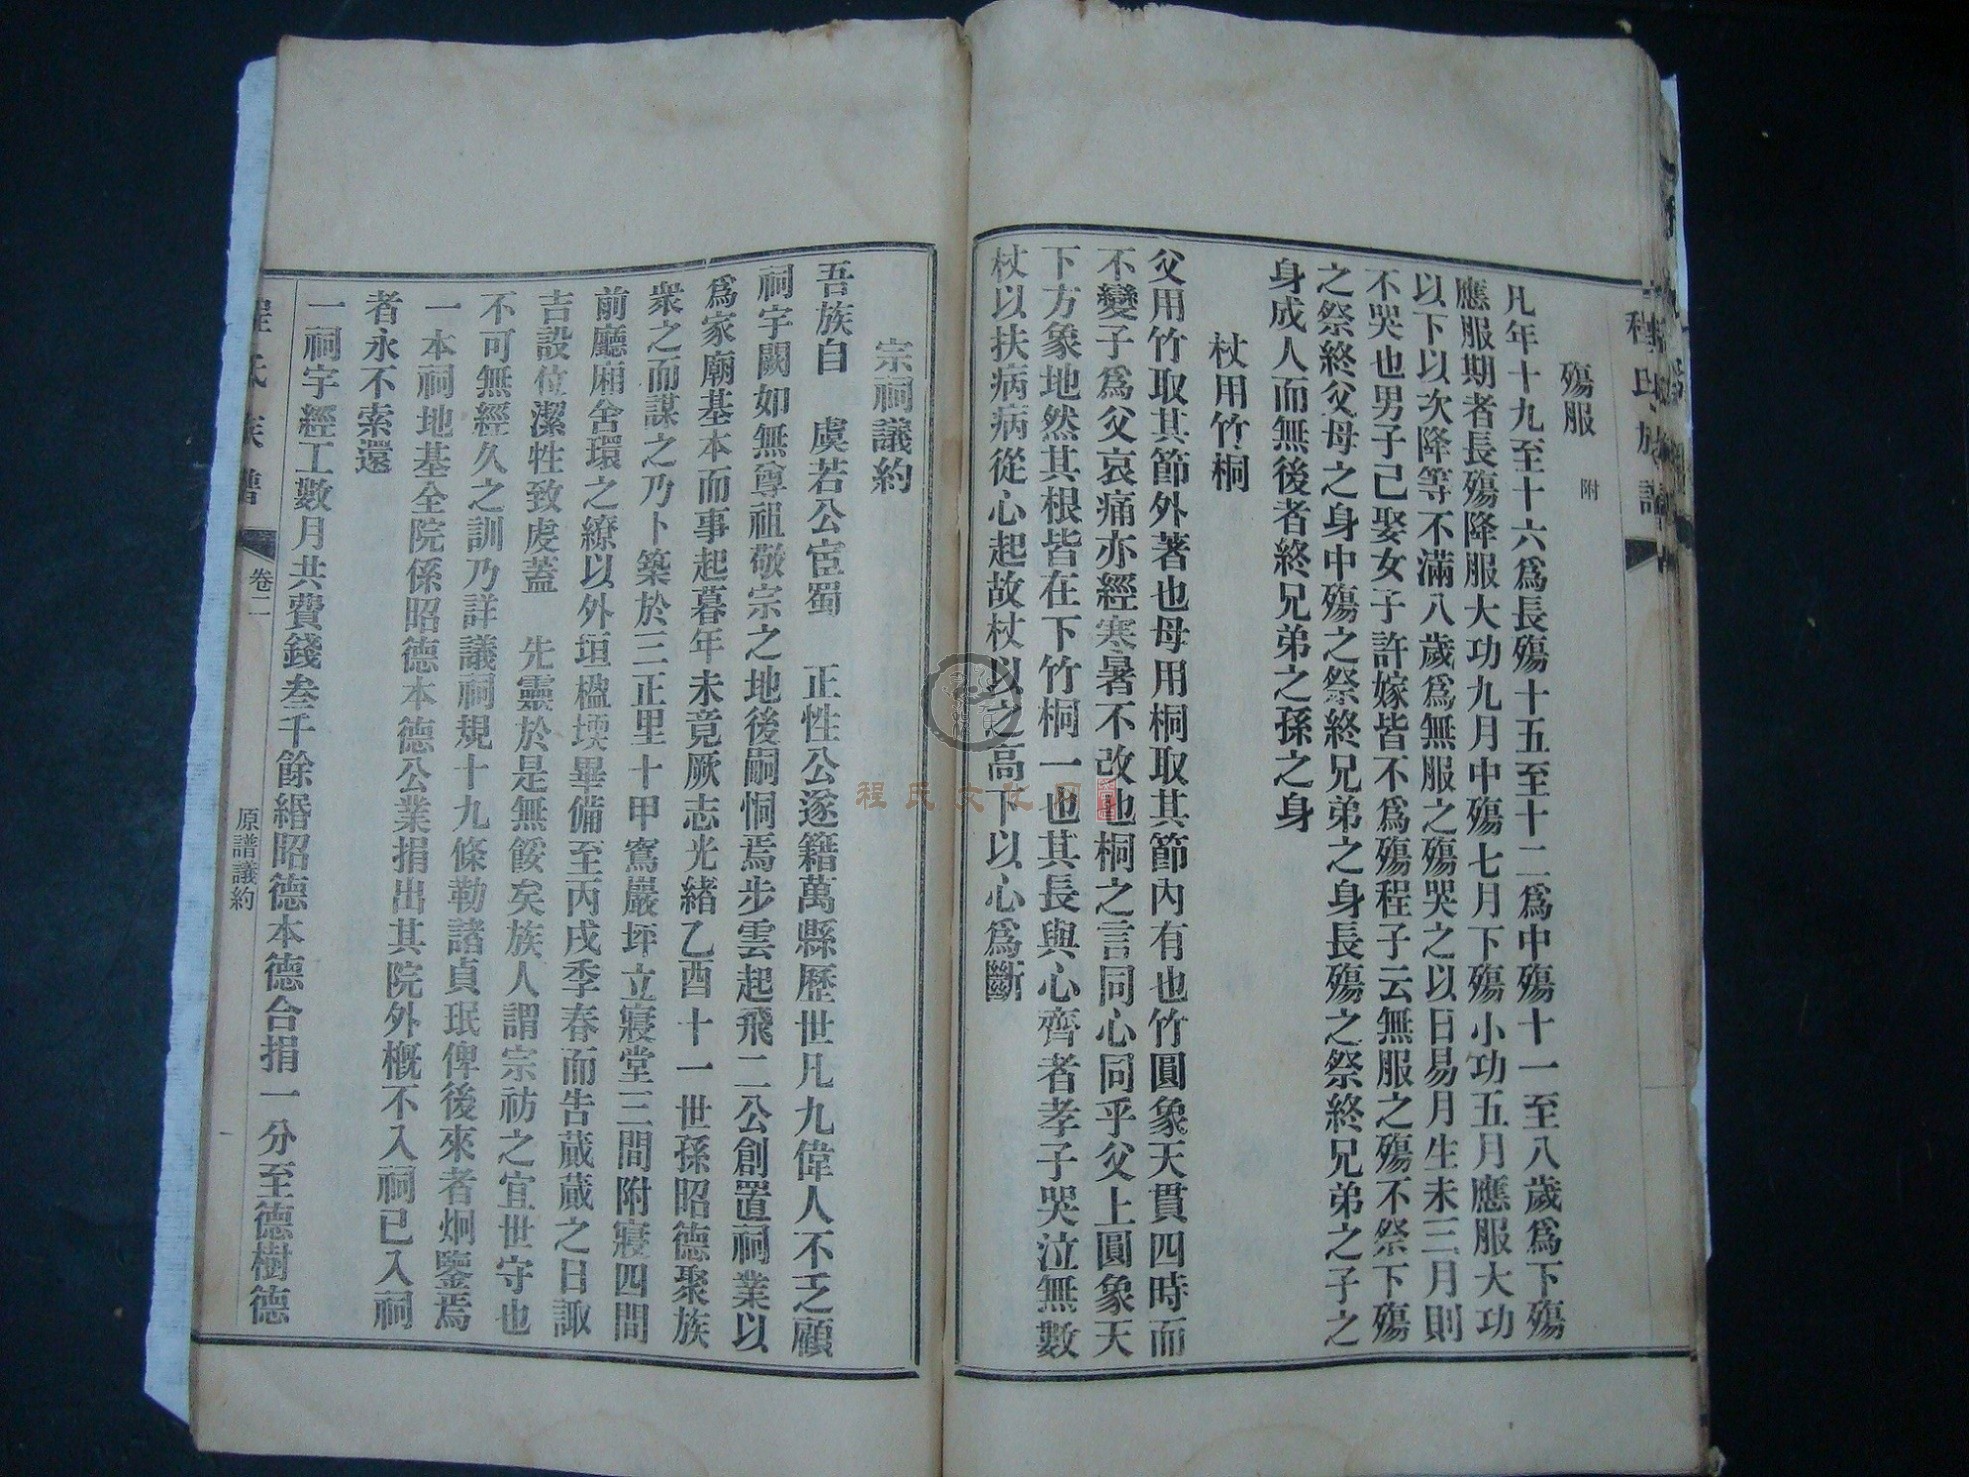 程氏族譜
殤服 附
凡年十九至十六爲長殤十五至十二爲中殤十一至八歲爲下殤
應服期者長殤降服大功九月中殤七月下殤小功五月應服大功
以下以次降等不滿八歲爲無服之殤哭之以日易月生未三月則
不哭也男子已娶女子許嫁皆不爲殤程子云無服之殤不祭下殤
之祭終父母之身中殤之祭終兄弟之身長殤之祭終兄弟之子之
身成人而無後者終兄弟之孫之身
杖用竹桐
父用竹取其節外著也母用桐取其節內有也竹圓象天貫四時而
不變子爲父哀痛亦經寒暑不改也桐之言同心同乎父上圓象天
下方象地然其根皆在下竹桐一也其長與心齊者孝子哭泣無數
杖以扶病病從心起故杖以之高下以心爲斷
宗祠議約
吾族自 虞若公宦蜀 正性公遂籍萬縣歷世凡九偉人不乏顧
祠宇闕如無尊祖敬宗之地後嗣恫焉步雲起飛二公創置祠業以
爲家廟基本而事起暮年未竟厥志光緒乙酉十一世孫昭德聚族
衆之而謀之乃卜築於三正里十甲窩巖坪立寢堂三間附寢四間
前廳廂舍環之繚以外垣楹堧畢備至丙戌季春而告蕆蕆之日諏
吉設位潔牲致虔蓋 先靈於是無餒矣族人謂宗祊之宜世守也
不可無經久之訓乃詳議祠規十九條勒諸貞珉俾後來者炯鑒焉
一本祠地基全院係昭德本德公業捐出其院外概不入祠已入祠
者永不索還
一祠宇經工數月共費錢叁千餘緡昭德本德合捐一分至德樹德
程氏族譜 卷二 原譜議約
程氏文化网